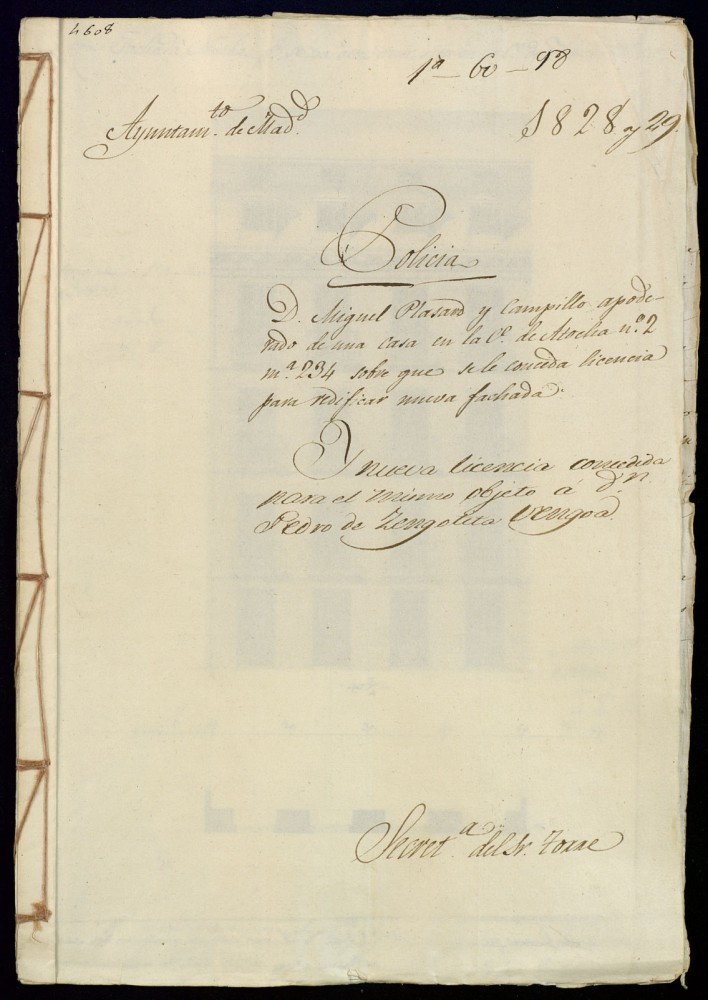 4608
1ª - 60 - 98
Ayuntamto. de Madd.
1828 y 29.
Policia
D. Miguel Plasard y Campillo, apode-
rado de una casa en la Ce. de Atocha n.º 2
m.ª 234 sobre que se le conceda licencia
para redificar nueva fachada.
Y nueva licencia concedida
para el mismo objeto á dn.
Pedro de Zengotita Vengoa.
Secreta. del Sr. Torre